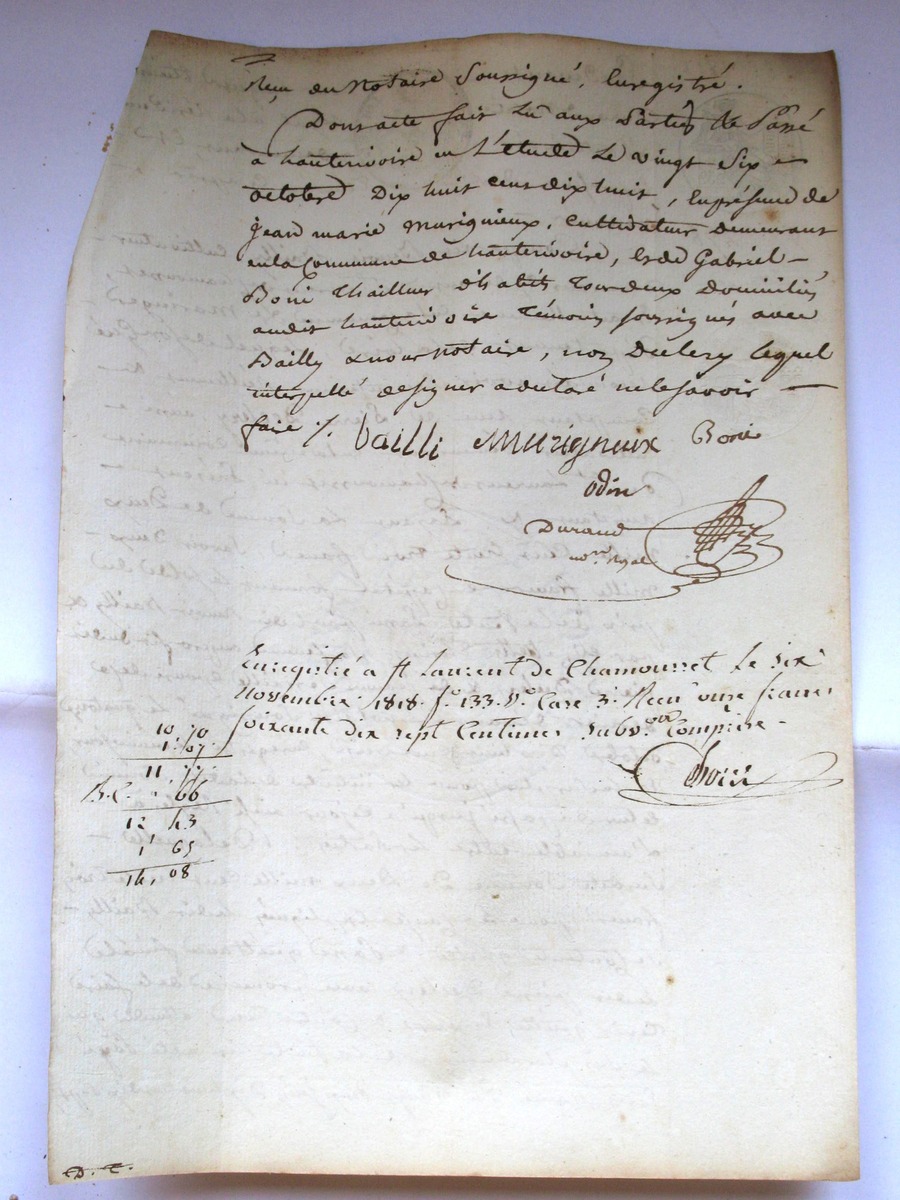 Reçu du Notaire Soussigné, Enregistré.
Dont acte fait Lu aux Parties Et Passé
à hauterivoire en L'étude Le vingt Six
octobre Dix huit cent dix huit, En présence de
Jean marie murigneux, Cultivateur Demeurant
en la Commune de hauterivoire, et de Gabriel
Boni Tous deux Domiciliés
audit hauterivoire Témoins soussignés avec
Bailly & nous Notaire, non Duclery lequel
interpellé de signer a déclaré ne le savoir
faire ./.
bailli Murigneux Boni
odin
Durand
no.re Royal
Enregistré a St Laurent de Chamousset Le six
Novembre 1818. f.o 133. V.o Case 3. Reçu onze francs
soixante dix sept Centimes subv.on Comprise
10 70
1. 07
11 77
66
12 43
1 65
14, 08
D. T.